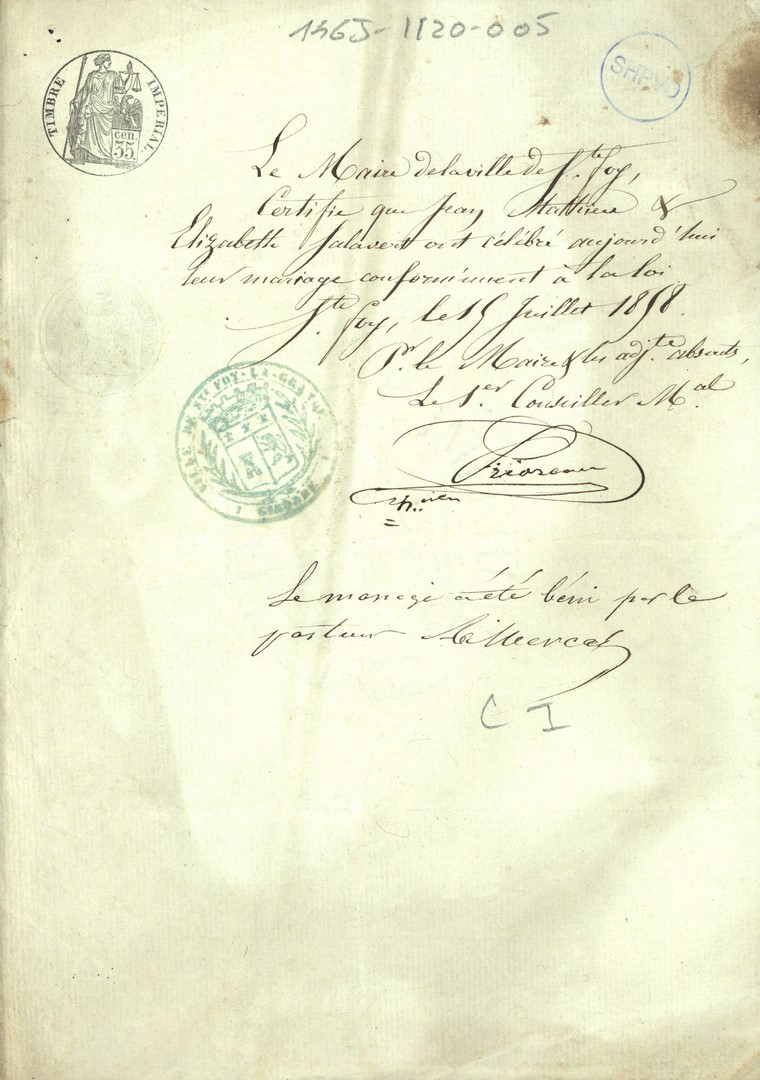 146J-1120-005
SHPVD
TIMBRE IMPERIAL
cen.
35.
Le Maire de la ville de Ste. foy,
Certifie que Jean Mathieu &
Elizabeth Salavert ont célébré aujourd'hui
leur mariage conformément à la loi
Ste. foy, le 15 Juillet 1858.
Pr. le Maire & les adjts. absents,
Le 1er. Conseiller Mal.
VILLE DE STE FOY-LA-GRANDE
GIRONDE
Le mariage a été béni par le
pasteur
C I